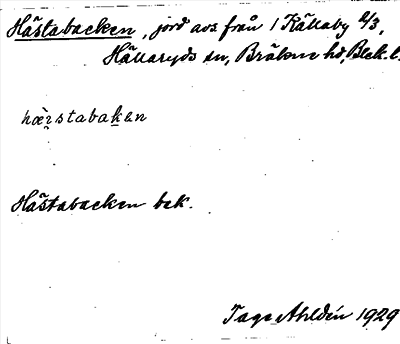 Hästabacken, jord avs från 1 Källaby 2/3,
Hällaryds sn, Bräkne hd, Blek. l.
hæ̀ʀstabaḵən
Hästabacken bek.
Tage Ahldén 1929